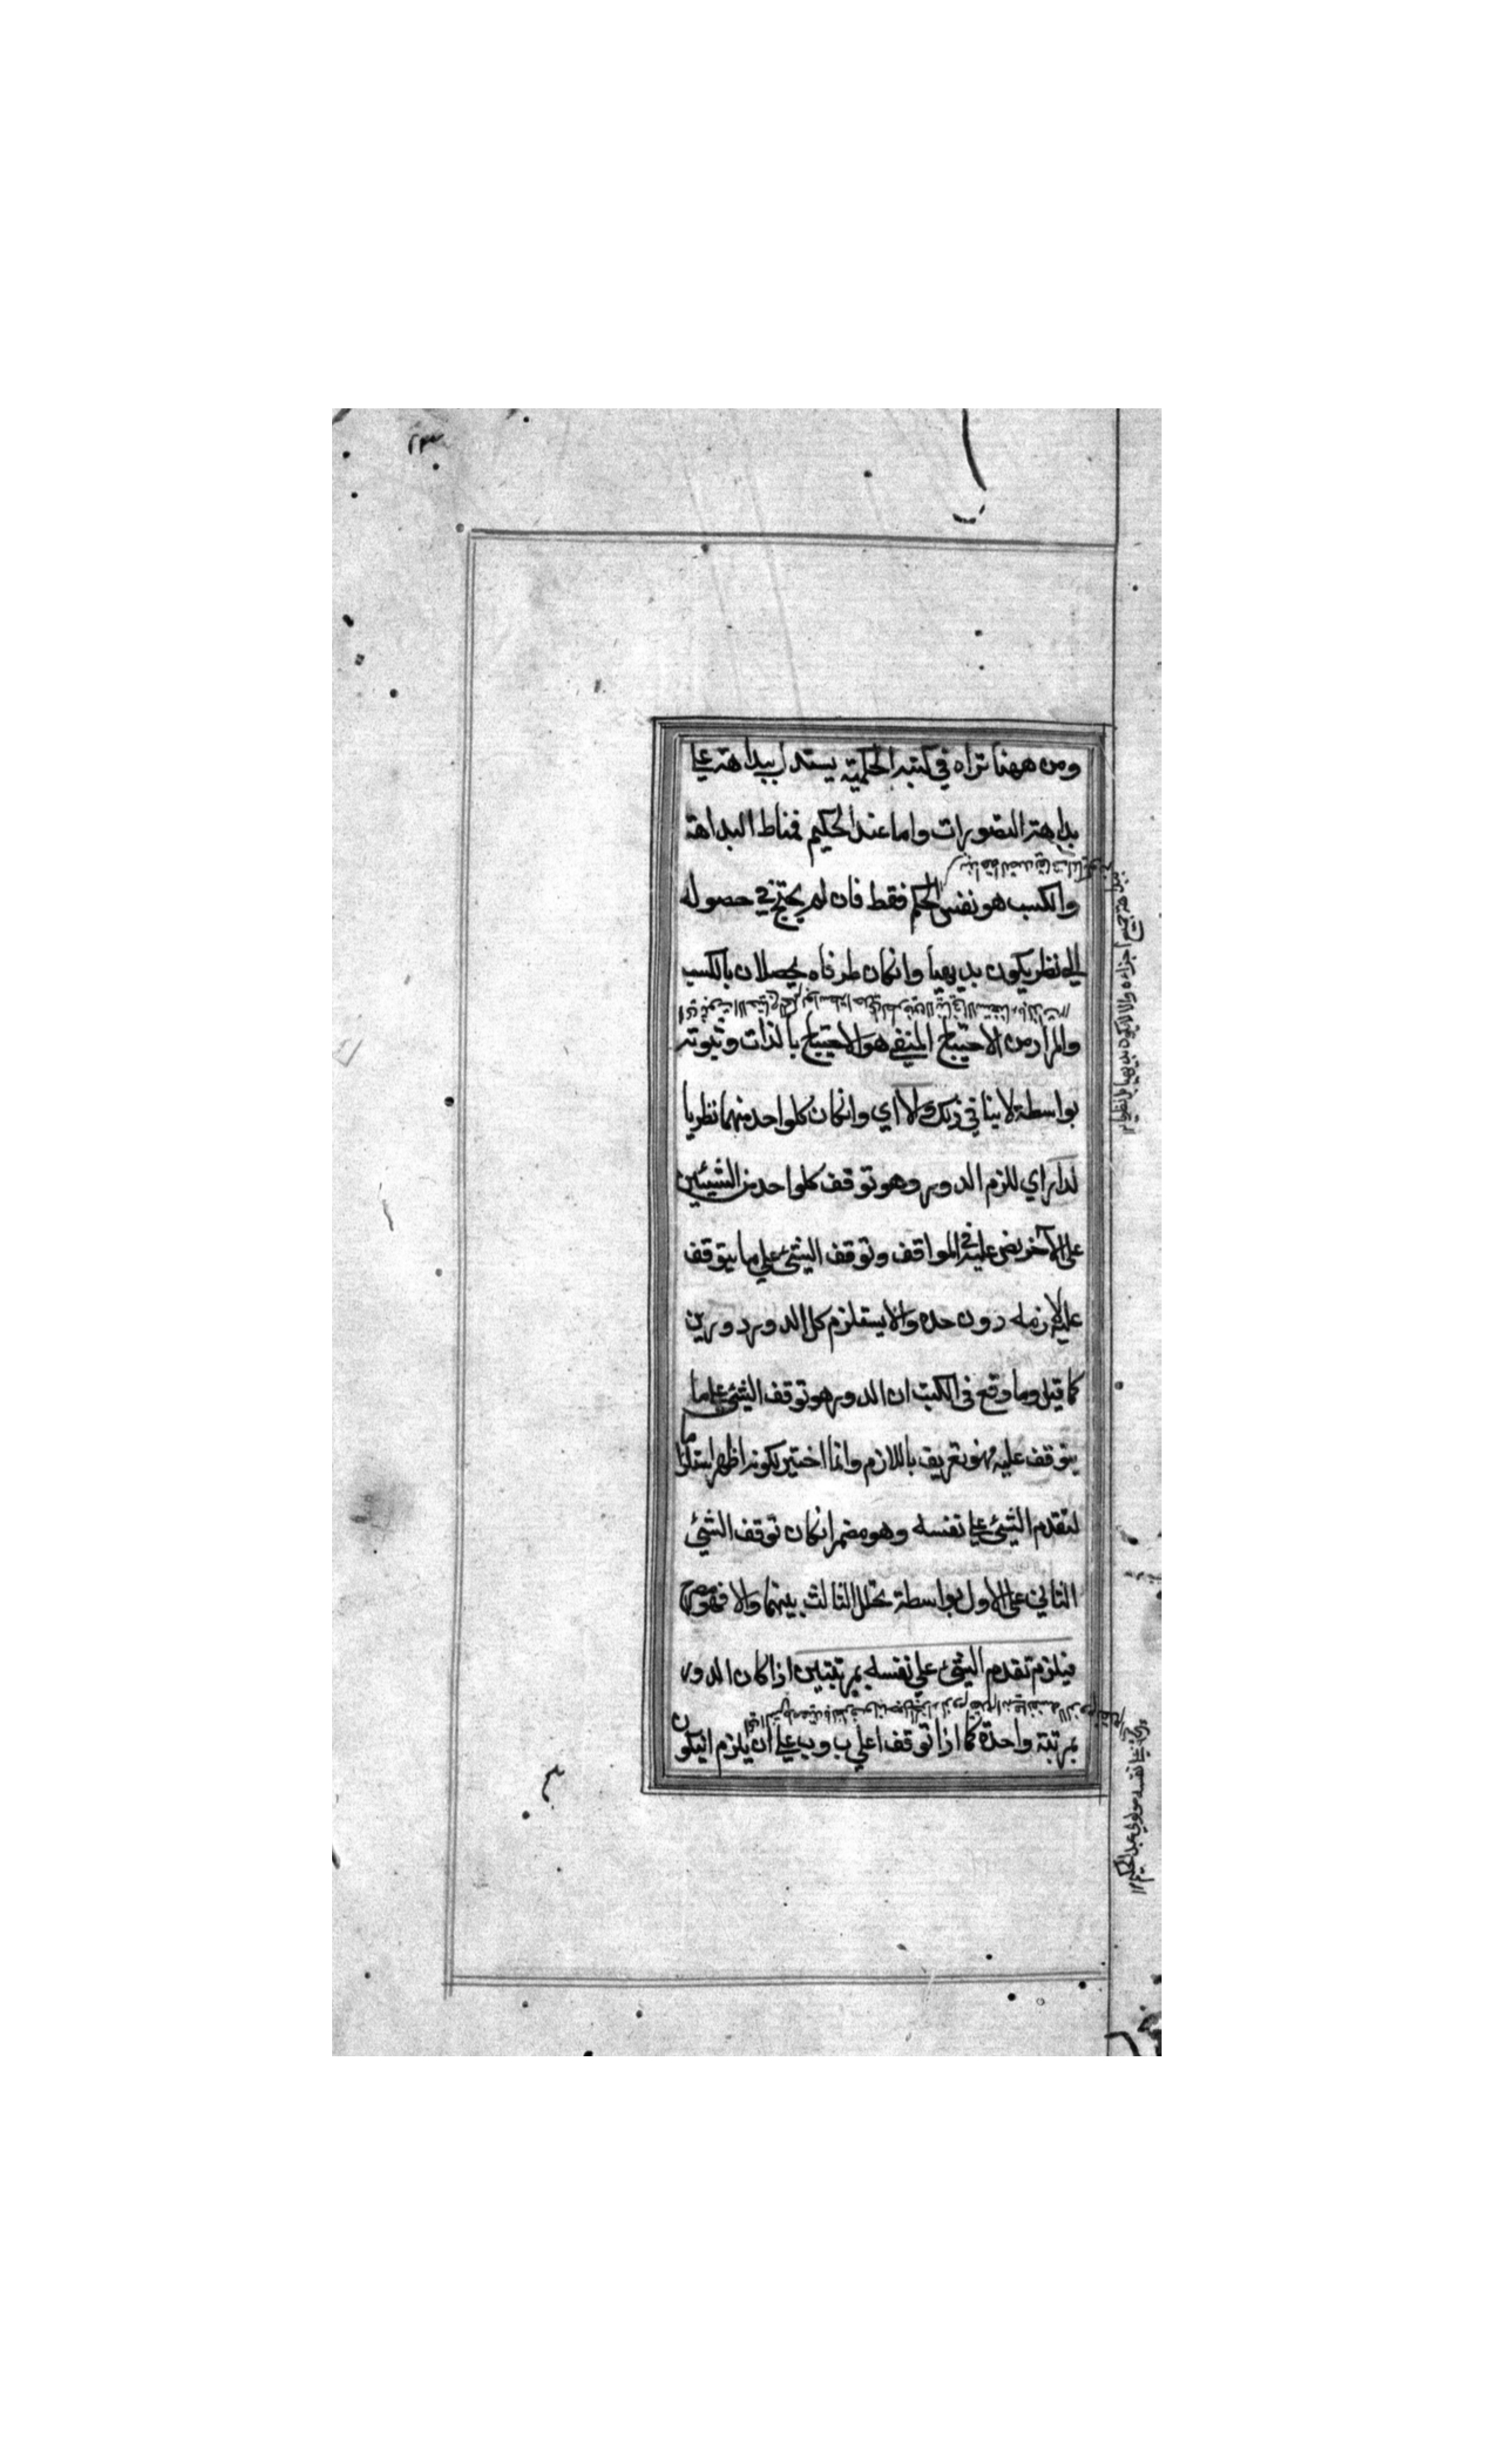 ٢٣
ومن ههنا تراه في كتبه الحكمية يستدل ببداهته علي
بداهة التصورات واما عند الحكيم فمناط البداهة
والكسب هو نفس الحكم فقط فان لم يحتج في حصوله
الي نظر يكون بديهيا وانكان طرفاه يحصلان بالكسب
والمراد من الاحتياج المنفي هو الاحتياج بالذات وثبوته
بواسطة لا ينافي ذلك ولا اي وانكان كلواحد منهما نظريا
لدار اي للزم الدور وهو توقف كلواحد من الشيئين
علي الآخر نص عليه في المواقف وتوقف الشئ علي ما يتوقف
عليه لازمه دون حده والا يستلزم كل الدور دورين
كما قيل وما وقع في الكتب ان الدور هو توقف الشئ علي ما
يتوقف عليه فهو تعريف باللازم وانما اختير لكونه اظهر استلزاما
لتقدم الشئ علي نفسه وهو مضمر انكان توقف الشئ
الثاني علي الاول بواسطة تخلل الثالث بينهما والا فهو مصرح
فيلزم تقدم الشئ علي نفسه بمرتبتين اذا كان الدور
بمرتبة واحدة كما اذا توقف ا علي ب وب علي ا ن يلزم انيكون
جميع اجزاءه والا لا يكون بديهيا بل نظريا ١٢
علي نفسه مولوي عبد الحكيم ١٢